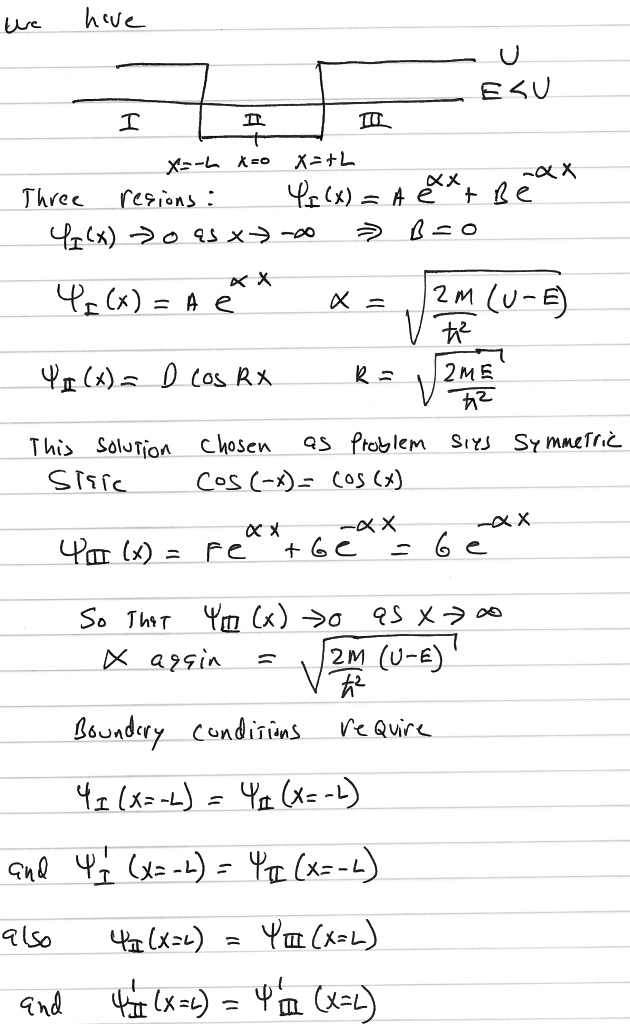 we have
U
E<U
I II III
x=-L x=0 x=+L
Three regions: Ψ_I(x) = A e^{αx} + B e^{-αx}
Ψ_I(x) → 0 as x → -∞ ⇒ B = 0
Ψ_I(x) = A e^{αx} α = √(2M/ħ² (U-E))
Ψ_II(x) = D cos Rx R = √(2ME/ħ²)
This solution chosen as problem says symmetric
state cos(-x) = cos(x)
Ψ_III(x) = F e^{αx} + G e^{-αx} = G e^{-αx}
So that Ψ_III(x) → 0 as x → ∞
α again = √(2M/ħ² (U-E))
Boundary conditions require
Ψ_I(x=-L) = Ψ_II(x=-L)
and Ψ_I'(x=-L) = Ψ_II(x=-L)
also Ψ_II(x=L) = Ψ_III(x=L)
and Ψ_II'(x=L) = Ψ_III'(x=L)